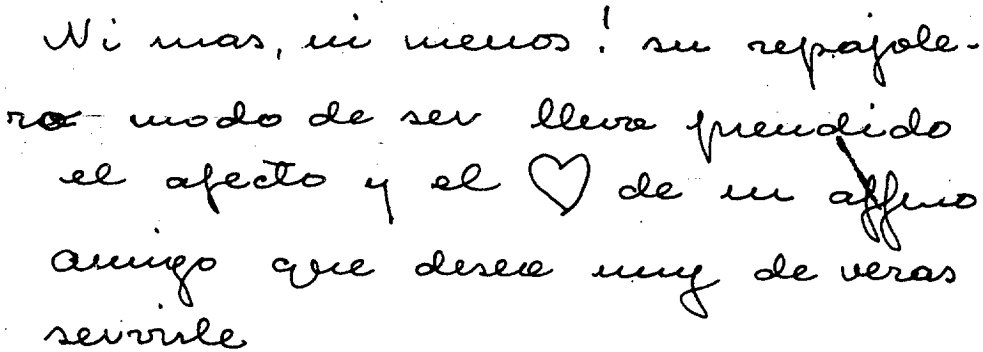 Ni mas, ni menos! su repajole-
ro modo de ser lleva prendido
el afecto y el ♡ de su affmo
amigo que desea muy de veras
servirle